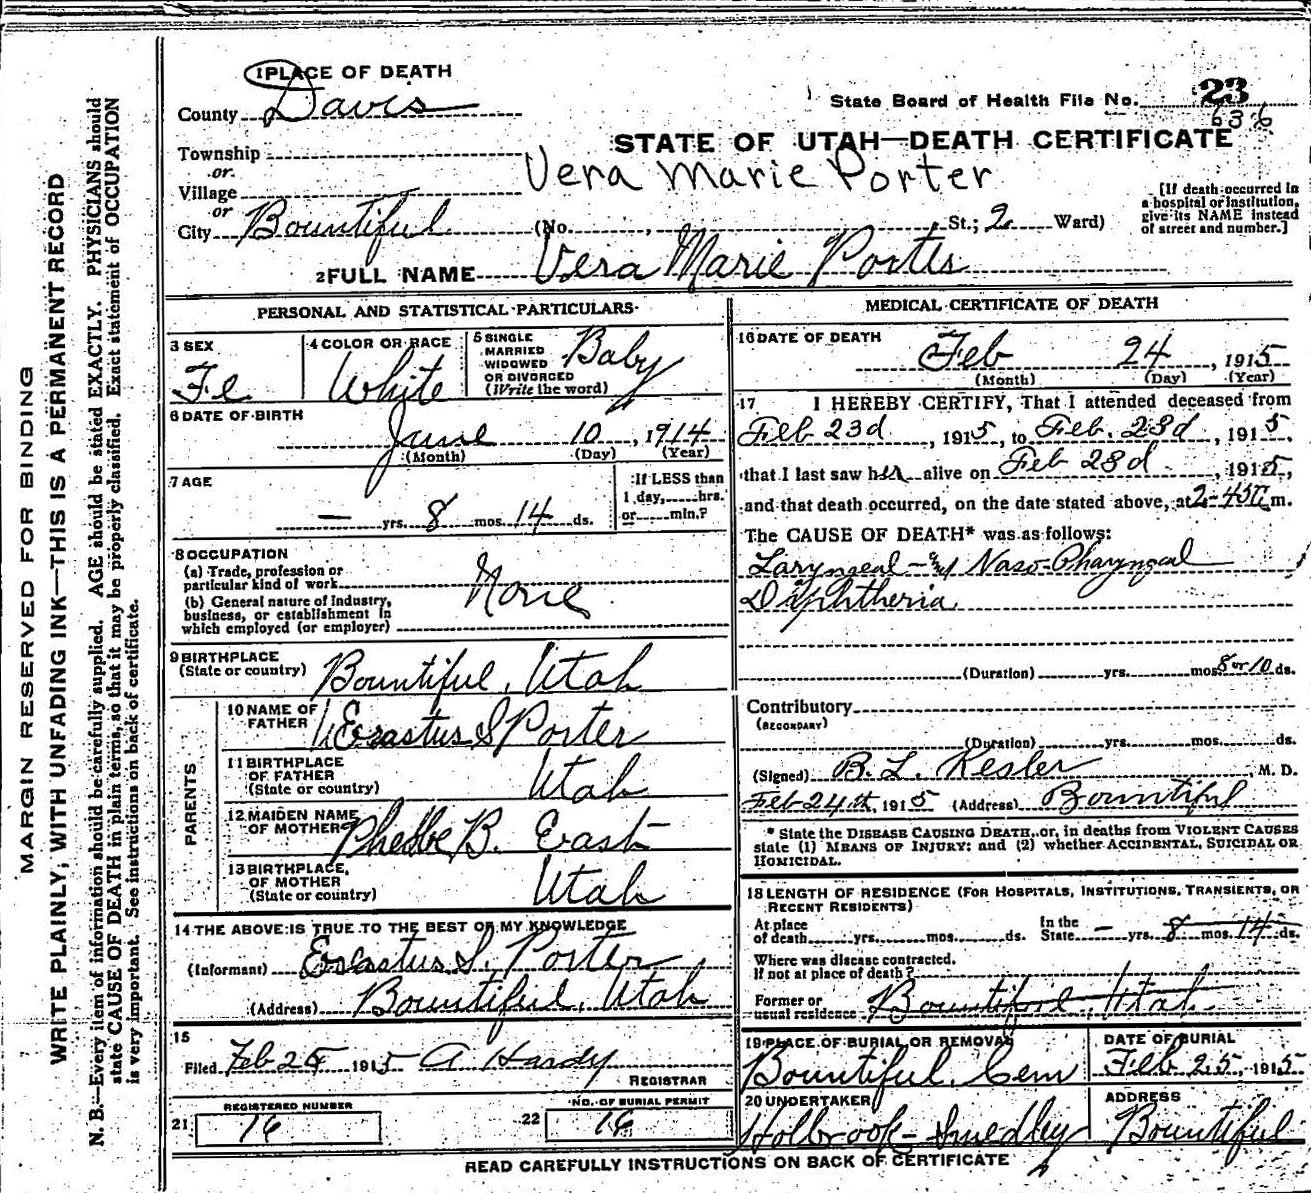 1 PLACE OF DEATH
County Davis
State Board of Health File No. 23
636
STATE OF UTAH—DEATH CERTIFICATE
Township
or
Village
Vera Marie Porter
or
City Bountiful (No. , St.; 2 Ward)
[If death occurred in a hospital or institution, give its NAME instead of street and number.]
2 FULL NAME Vera Marie Porter
PERSONAL AND STATISTICAL PARTICULARS
3 SEX
Fe
4 COLOR OR RACE
White
5 SINGLE MARRIED WIDOWED OR DIVORCED (Write the word)
Baby
6 DATE OF BIRTH
June 10, 1914
(Month) (Day) (Year)
7 AGE
— yrs. 8 mos. 14 ds.
If LESS than
1 day, hrs.
or min.?
8 OCCUPATION
(a) Trade, profession or
particular kind of work
(b) General nature of industry,
business, or establishment in
which employed (or employer)
None
9 BIRTHPLACE
(State or country)
Bountiful, Utah
PARENTS
10 NAME OF FATHER
Erastus S Porter
11 BIRTHPLACE OF FATHER
(State or country)
Utah
12 MAIDEN NAME OF MOTHER
Phebe B. East
13 BIRTHPLACE, OF MOTHER
(State or country)
Utah
14 THE ABOVE IS TRUE TO THE BEST OF MY KNOWLEDGE
(Informant) Erastus S. Porter
(Address) Bountiful, Utah
15
Filed Feb 25 1915 A Hardy
REGISTRAR
21 REGISTERED NUMBER
16
22 NO. OF BURIAL PERMIT
16
MEDICAL CERTIFICATE OF DEATH
16 DATE OF DEATH
Feb 24, 1915
(Month) (Day) (Year)
17 I HEREBY CERTIFY, That I attended deceased from
Feb 23d, 1915, to Feb. 23d, 1915,
that I last saw her alive on Feb 23d, 1915,
and that death occurred, on the date stated above, at 2-45 m.
The CAUSE OF DEATH* was as follows:
Laryngeal - and Naso-Pharyngeal
Diphtheria
(Duration) yrs. mos. 8 or 10 ds.
Contributory
(SECONDARY)
(Duration) yrs. mos. ds.
(Signed) B. L. Kesler, M. D.
Feb 24th, 1915 (Address) Bountiful
* State the DISEASE CAUSING DEATH, or, in deaths from VIOLENT CAUSES
state (1) MEANS OF INJURY; and (2) whether ACCIDENTAL, SUICIDAL OR
HOMICIDAL.
18 LENGTH OF RESIDENCE (FOR HOSPITALS, INSTITUTIONS, TRANSIENTS, OR
RECENT RESIDENTS)
At place of death yrs. mos. ds. In the State — yrs. 8 mos. 14 ds.
Where was disease contracted,
If not at place of death?
Former or
usual residence Bountiful, Utah
19 PLACE OF BURIAL OR REMOVAL
Bountiful, Cem
DATE OF BURIAL
Feb 25, 1915
20 UNDERTAKER
Holbrook-Smedley
ADDRESS
Bountiful
READ CAREFULLY INSTRUCTIONS ON BACK OF CERTIFICATE
MARGIN RESERVED FOR BINDING
WRITE PLAINLY, WITH UNFADING INK—THIS IS A PERMANENT RECORD
N. B.—Every item of information should be carefully supplied. AGE should be stated EXACTLY. PHYSICIANS should
state CAUSE OF DEATH in plain terms, so that it may be properly classified. Exact statement of OCCUPATION
is very important. See instructions on back of certificate.